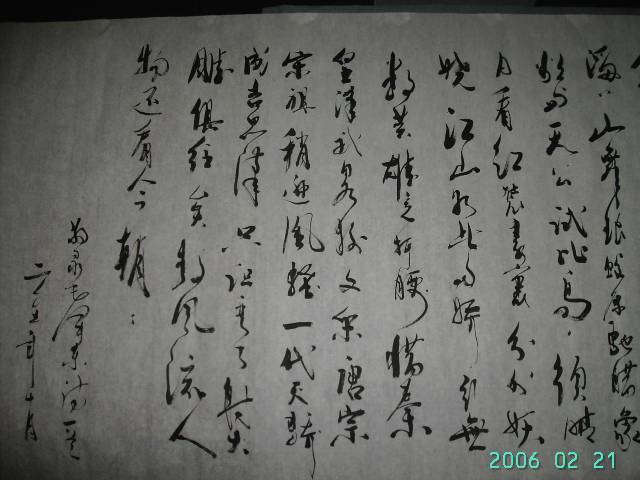 山舞银蛇原驰腊象
欲与天公试比高、须晴
日看红装素裹分外妖
娆江山如此多娇引無
数英雄竞折腰惜秦
皇汉武略输文采唐宗
宋祖稍逊風骚一代天骄
成吉思汗只识弯弓射大
雕俱往矣数风流人
物还看今朝:
毛泽东诗一首
五年十月
2006 02 21